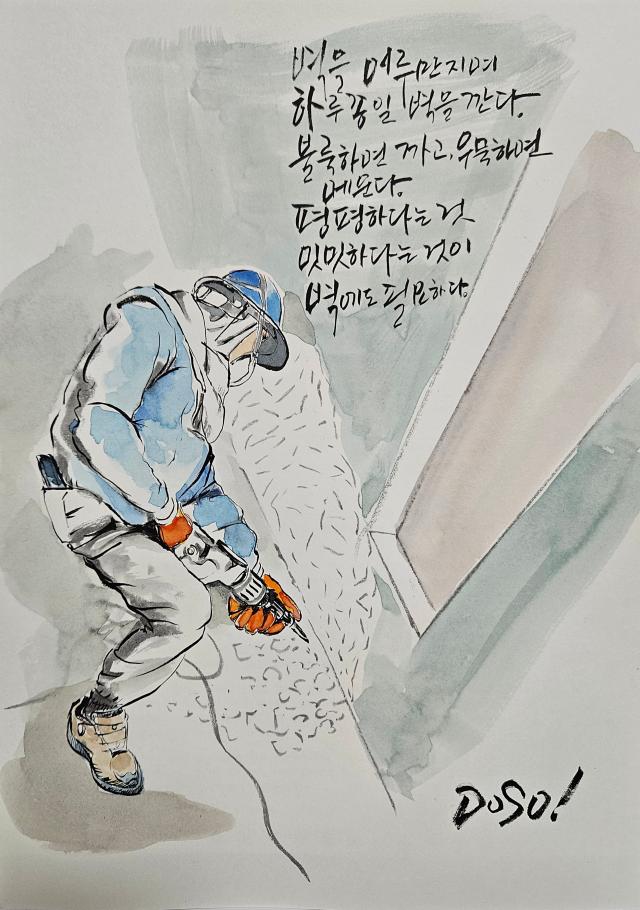 벽을 어루만지며
하루종일 벽을 깐다.
불룩하면 까고, 우묵하면
메운다.
평평하다는 것
밋밋하다는 것이
벽에도 필요하다.
DOSO!